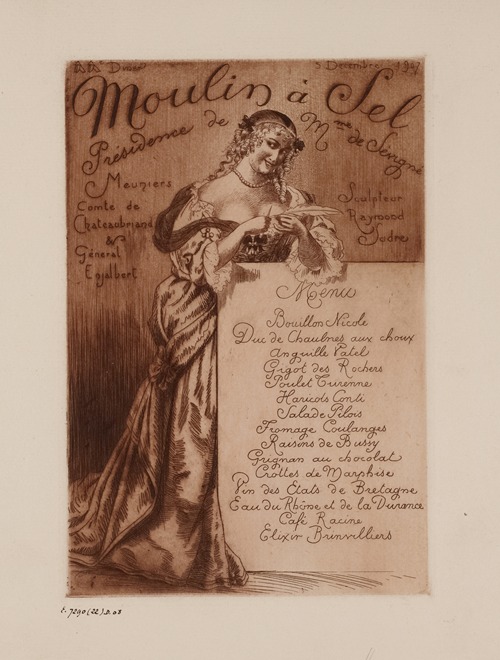 Diner
5 Decembre 1907
Moulin à Sel
Présidence de Mme de Sévigné
Meuniers
Comte de
Chateaubriand
&
Général
Enjalbert
Sculpteur
Raymond
Sudre
Menu
Bouillon Nicole
Duc de Chaulnes aux choux
Anguille Vatel
Gigot des Rochers
Poulet Turenne
Haricots Conti
Salade Pilois
Fromage Coulanges
Raisins de Bussy
Grignan au chocolat
Crottes de Marphise
Vin des Etats de Bretagne
Eau du Rhône et de la Durance
Café Racine
Elixir Brinvilliers
E. 7290 (22). D. 08